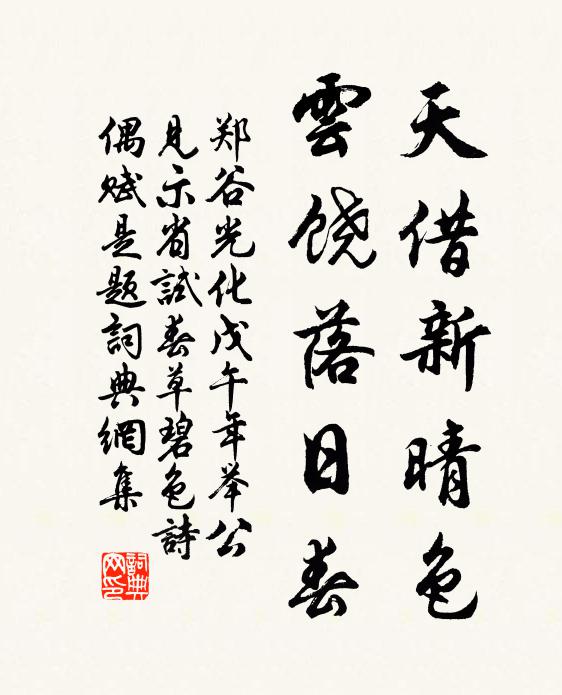 天借新晴色
雲饶落日春
郑谷光化戊午年举公
见示省試春草碧色詩
偶赋是题詞典網集
詞典
网印